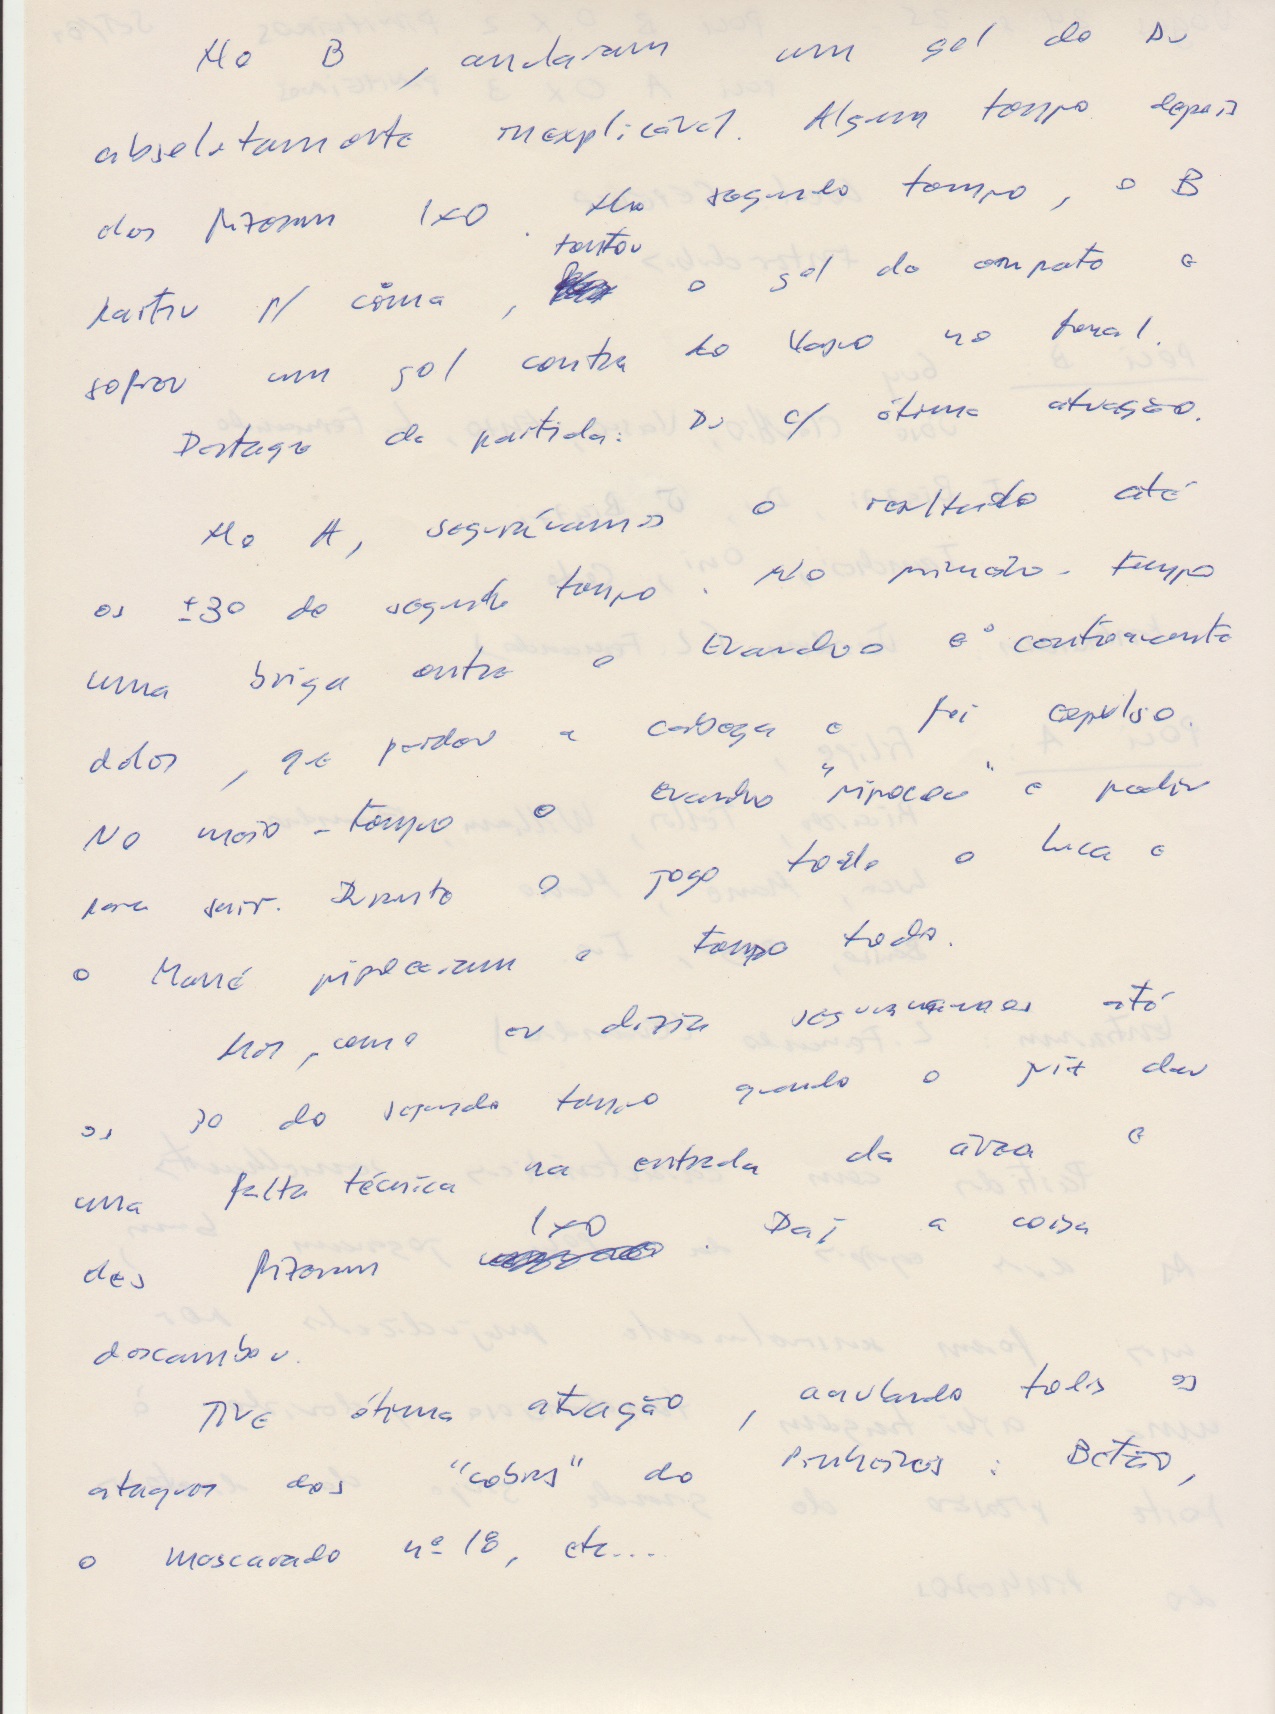 No B, anularam um gol do Du
absolutamente inexplicável. Algum tempo depois
eles fizeram 1x0. No segundo tempo, o B
partiu p/ cima, tentou o gol do empate e
sofreu um gol contra do Vasco no final.
Destaque da partida: Du c/ ótima atuação.
No A, segurávamos o resultado até
os ±30 do segundo tempo. No primeiro-tempo
uma briga entre o Evandro e o centroavante
deles, que perdeu a cabeça e foi expulso.
No meio-tempo o Evandro "pipocou" e pediu
para sair. Durante o jogo todo o Luca e
o Mané pipocaram o tempo todo.
Mas, como eu dizia seguramos até
os 30 do segundo tempo quando o juiz deu
uma falta técnica na entrada da área e
eles fizeram 1x0. Daí a coisa
descambou.
Tive ótima atuação, anulando todos os
ataques dos "cobras" do Pinheiros: Betão,
o mascarado nº 18, etc...